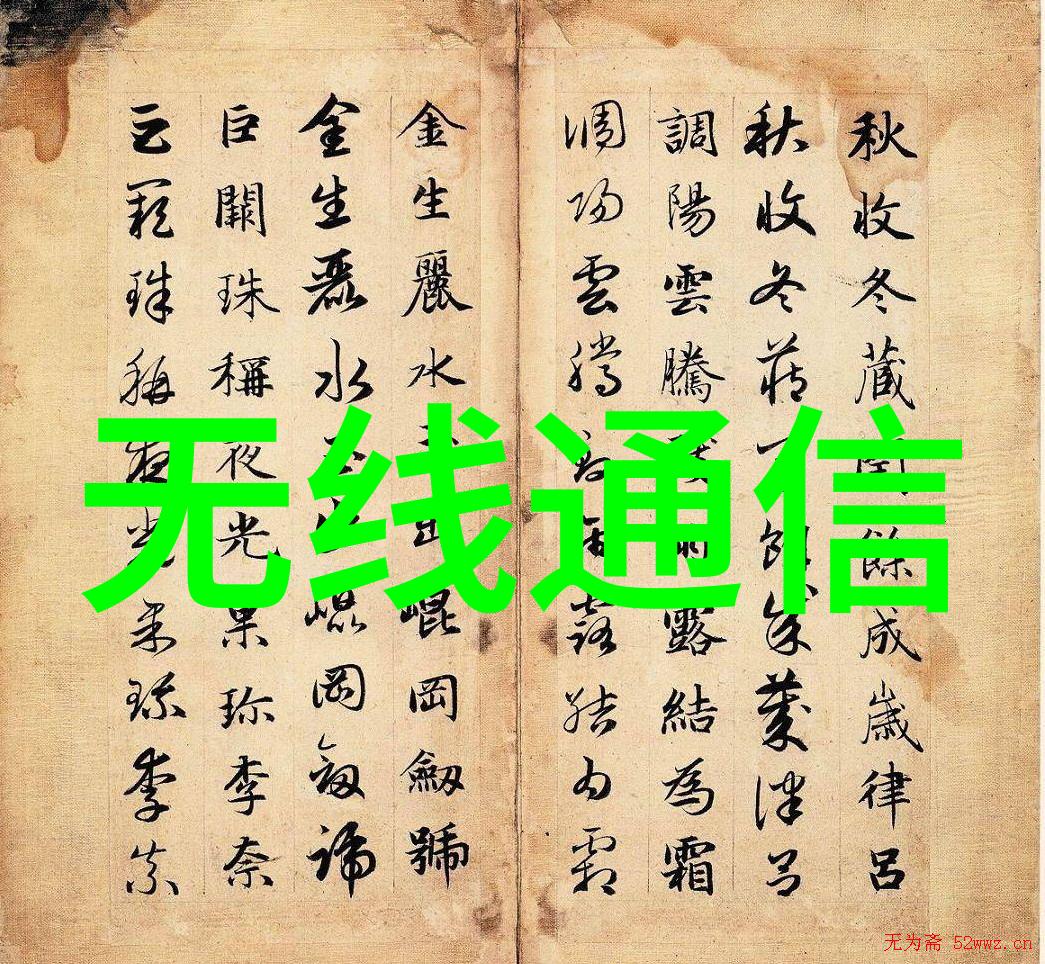 秋收冬藏閏餘成歲律呂
秋收冬藏餘成歲律呂
調陽雲騰雨露結為霜
調陽雲騰致雨露結為霜
金生麗水出崐岡劒號
金生麗水出崐岡劒號
巨闕珠稱夜光果珎李柰
巨闕珠稱夜光果珎李柰
无线通信
无为斋 52wwz.cn